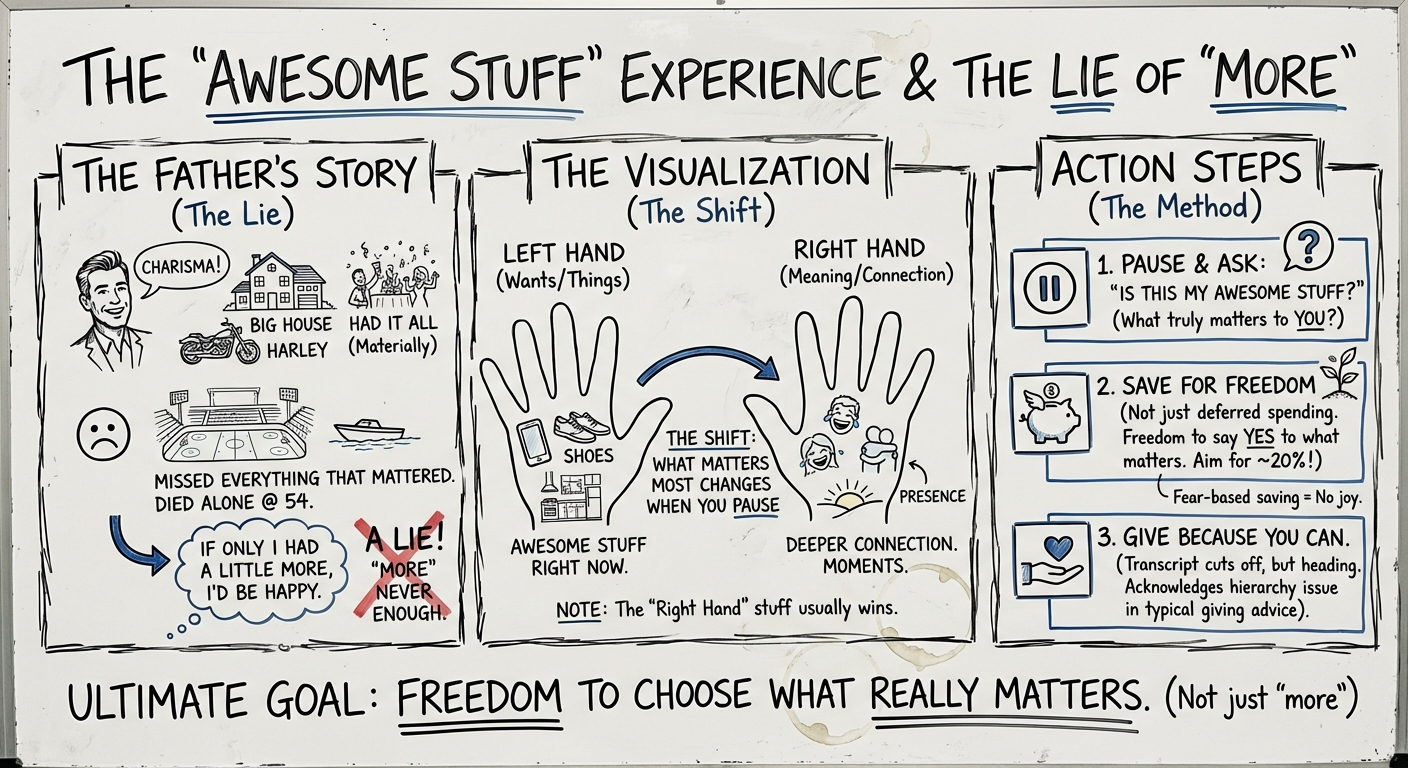 THE "AWESOME STUFF" EXPERIENCE & THE LIE OF "MORE"
THE FATHER'S STORY
(The Lie)
CHARISMA!
BIG HOUSE
HARLEY
HAD IT ALL
(Materially)
MISSED EVERYTHING THAT MATTERED.
DIED ALONE @ 54.
IF ONLY I HAD
A LITTLE MORE,
I'D BE HAPPY.
A LIE!
"MORE"
NEVER
ENOUGH.
THE VISUALIZATION
(The Shift)
LEFT HAND
(Wants/Things)
RIGHT HAND
(Meaning/Connection)
SHOES
THE SHIFT:
WHAT MATTERS
MOST CHANGES
WHEN YOU PAUSE
PRESENCE
AWESOME STUFF
RIGHT NOW.
DEEPER CONNECTION.
MOMENTS.
NOTE: The "Right Hand" stuff usually wins.
ACTION STEPS
(The Method)
?
1. PAUSE & ASK:
"IS THIS MY AWESOME STUFF?"
(What truly matters to YOU?)
$
2. SAVE FOR FREEDOM
(Not just deferred spending.
Freedom to say YES to what
matters. Aim for ~20%!)
Fear-based saving = No joy.
3. GIVE BECAUSE YOU CAN.
(Transcript cuts off, but heading.
Acknowledges hierarchy issue
in typical giving advice).
ULTIMATE GOAL: FREEDOM TO CHOOSE WHAT REALLY MATTERS. (Not just "more")